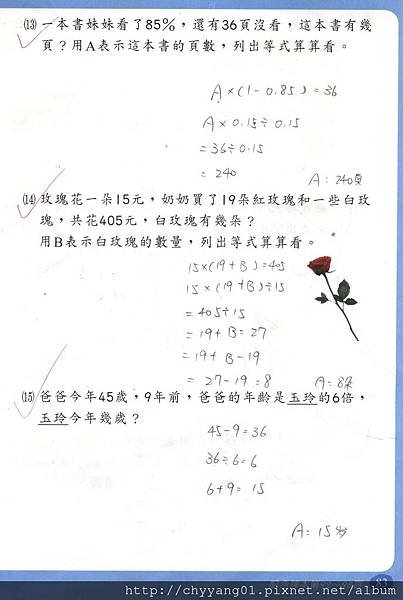 ⒀一本書妹妹看了85%，還有36頁沒看，這本書有幾
頁？用A表示這本書的頁數，列出等式算算看。
A×(1-0.85)=36
A×0.15÷0.15
=36÷0.15
=240
A：240頁
⒁玫瑰花一朵15元，奶奶買了19朵紅玫瑰和一些白玫
瑰，共花405元，白玫瑰有幾朵？
用B表示白玫瑰的數量，列出等式算算看。
15×(19+B)=405
15×(19+B)÷15
=405÷15
=19+B=27
=19+B-19
=27-19=8
A=8朵
⒂爸爸今年45歲，9年前，爸爸的年齡是玉玲的6倍，
玉玲今年幾歲？
45-9=36
36÷6=6
6+9=15
A=15歲
83
http://chyyang01.pixnet.net/album